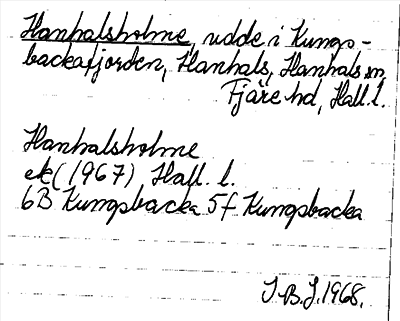 Hanhalsholme, udde i Kungs-
backafjorden, Hanhals, Hanhals sn,
Fjäre hd, Hall. l.
Hanhalsholme
ek (1967) Hall. l.
6B Kungsbacka 5f Kungsbacka
I.B.J. 1968.